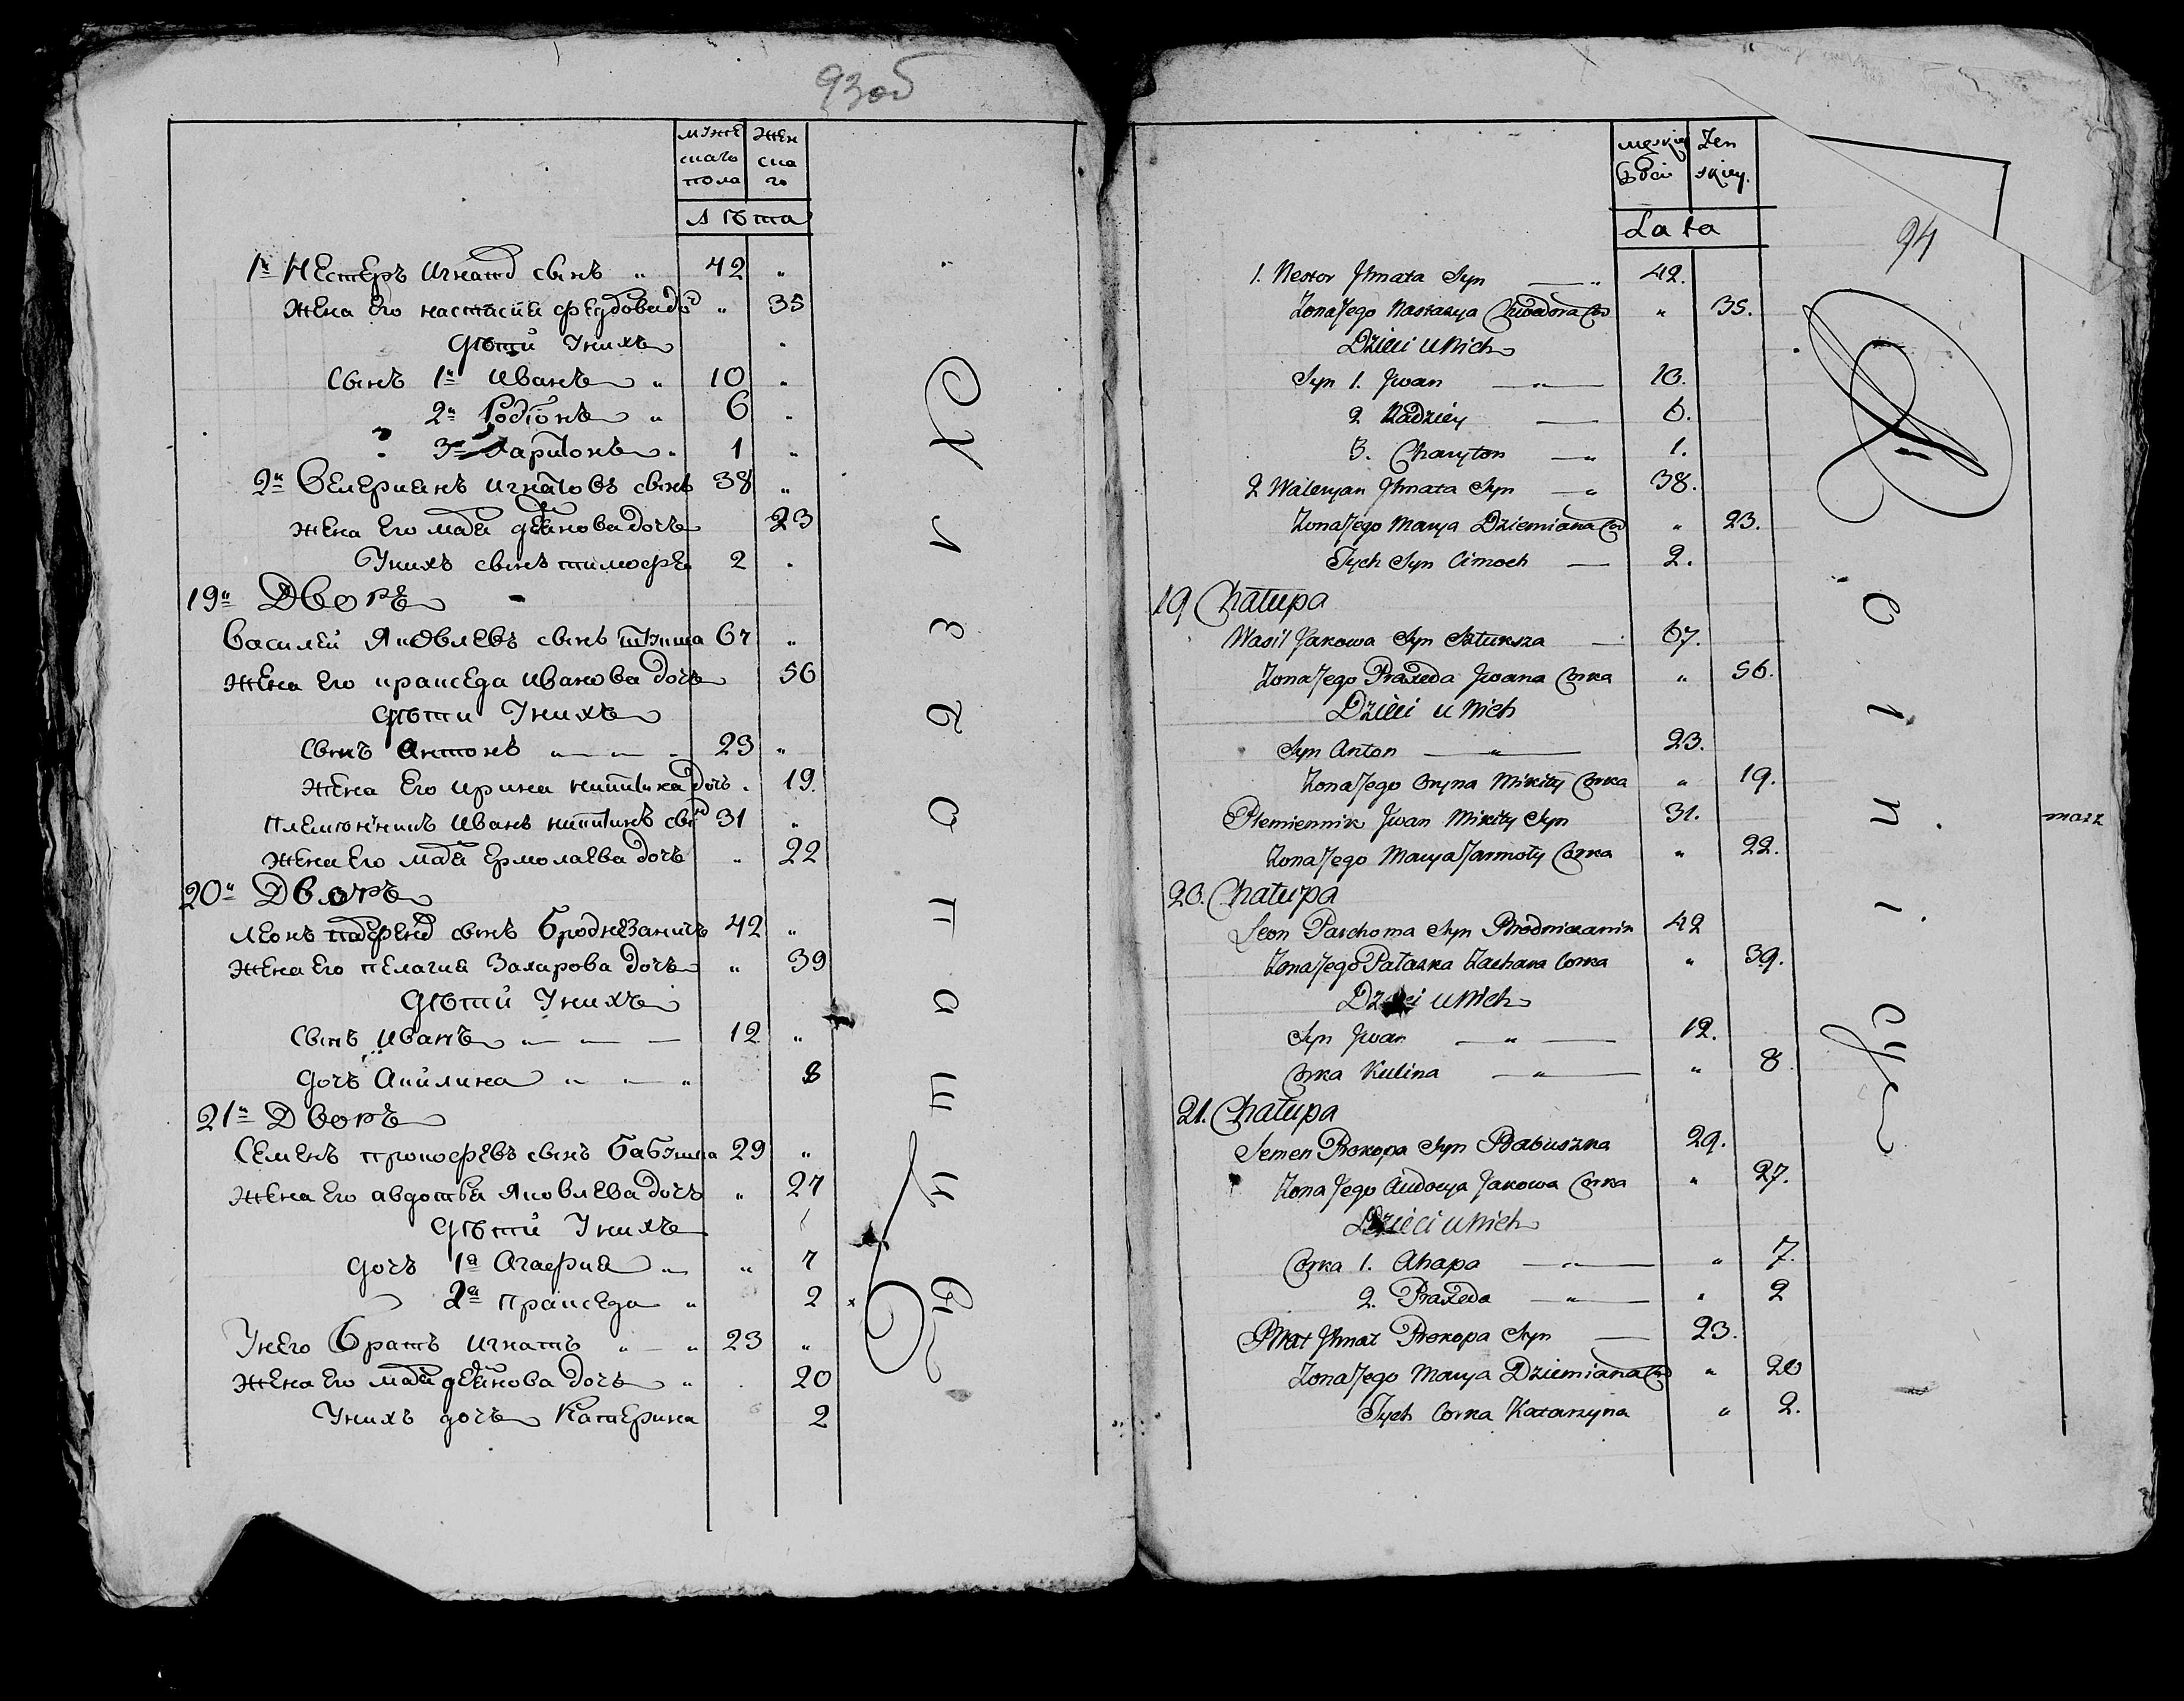 93 об
мужескаго пола женскаго
Лѣта
1й Нестеръ Игнатов сынъ 42
Жена Его настасия федоваа до 35
Дѣти Унихъ
Сынъ 1й Иванъ 10
2й Родионъ 6
3й Харитонъ 1
2й Велериянъ игнатовъ сынъ 38
Жена Его мадя деянова дочь 23
Унихъ сынъ тимофе 2
19й Дворъ
Василей Яковлевъ сынъ 67
Жена Его праиседа Иванова дочь 56
Дѣти Унихъ
Сынъ Антонъ 23
Жена Его ирина никитина дочь 19.
племѣнникъ Иванъ никитинъ сынъ 31
Жена Его мадя Ермолаева дочь 22
20й Дворъ
Леонъ сынъ Бродневаничъ 42
Жена Его пелагия Захарова дочь 39
Дѣти Унихъ
Сынъ Иванъ 12
дочь Акилина 8
21й Дворъ
Семенъ прокофевъ сынъ бабушка 29
Жена Его авдотья Яковлева дочь 27
Дѣти Унихъ
дочь 1а Агафия 7
2а праиседа 2
Унего братъ игнатъ 23
Жена Его мадя деянова дочь 20
Унихъ дочь Катерина 2
męskiey płci Żeńskiey.
Lata
94
1. Nestor Jhnata Syn 42.
Zona Jego Nastasya Chwedora Cor 35.
Dzieci u Nich
Syn 1. Jwan 10.
2 Radziey 6.
3. Charyton 1.
2 Waleryan Jhnata Syn 38.
Zona Jego Marya Dziemiana Cor 23.
Tych Syn Cimoch 2.
19 Chałupa
Wasil Jakowa Syn Szturxza 67.
Zona Jego Praxeda Jwana Corka 56.
Dzieci u Nich
Syn Anton 23.
Zona Jego Oryna Mikity Corka 19.
Plemiennik Jwan Mikity Syn 31.
Zona Jego Marya Jarmoły Corka 22.
20. Chałupa
Leon Parchoma Syn Brodniczanin 42
Zona Jego Pałaska Zachara Corka 39.
Dzieci u Nich
Syn Jwan 12.
Corka Kulina 8
21. Chałupa
Semen Prokopa Syn Babuszka 29.
Zona Jego Audocya Jakowa Corka 27.
Dzieci u Nich
Corka 1. Ahapa 7.
2. Praxeda 2
Brat Jhnat Prokopa Syn 23.
Zona Jego Marya Dziemiana Cor 20
Tych Corka Katarzyna 2.